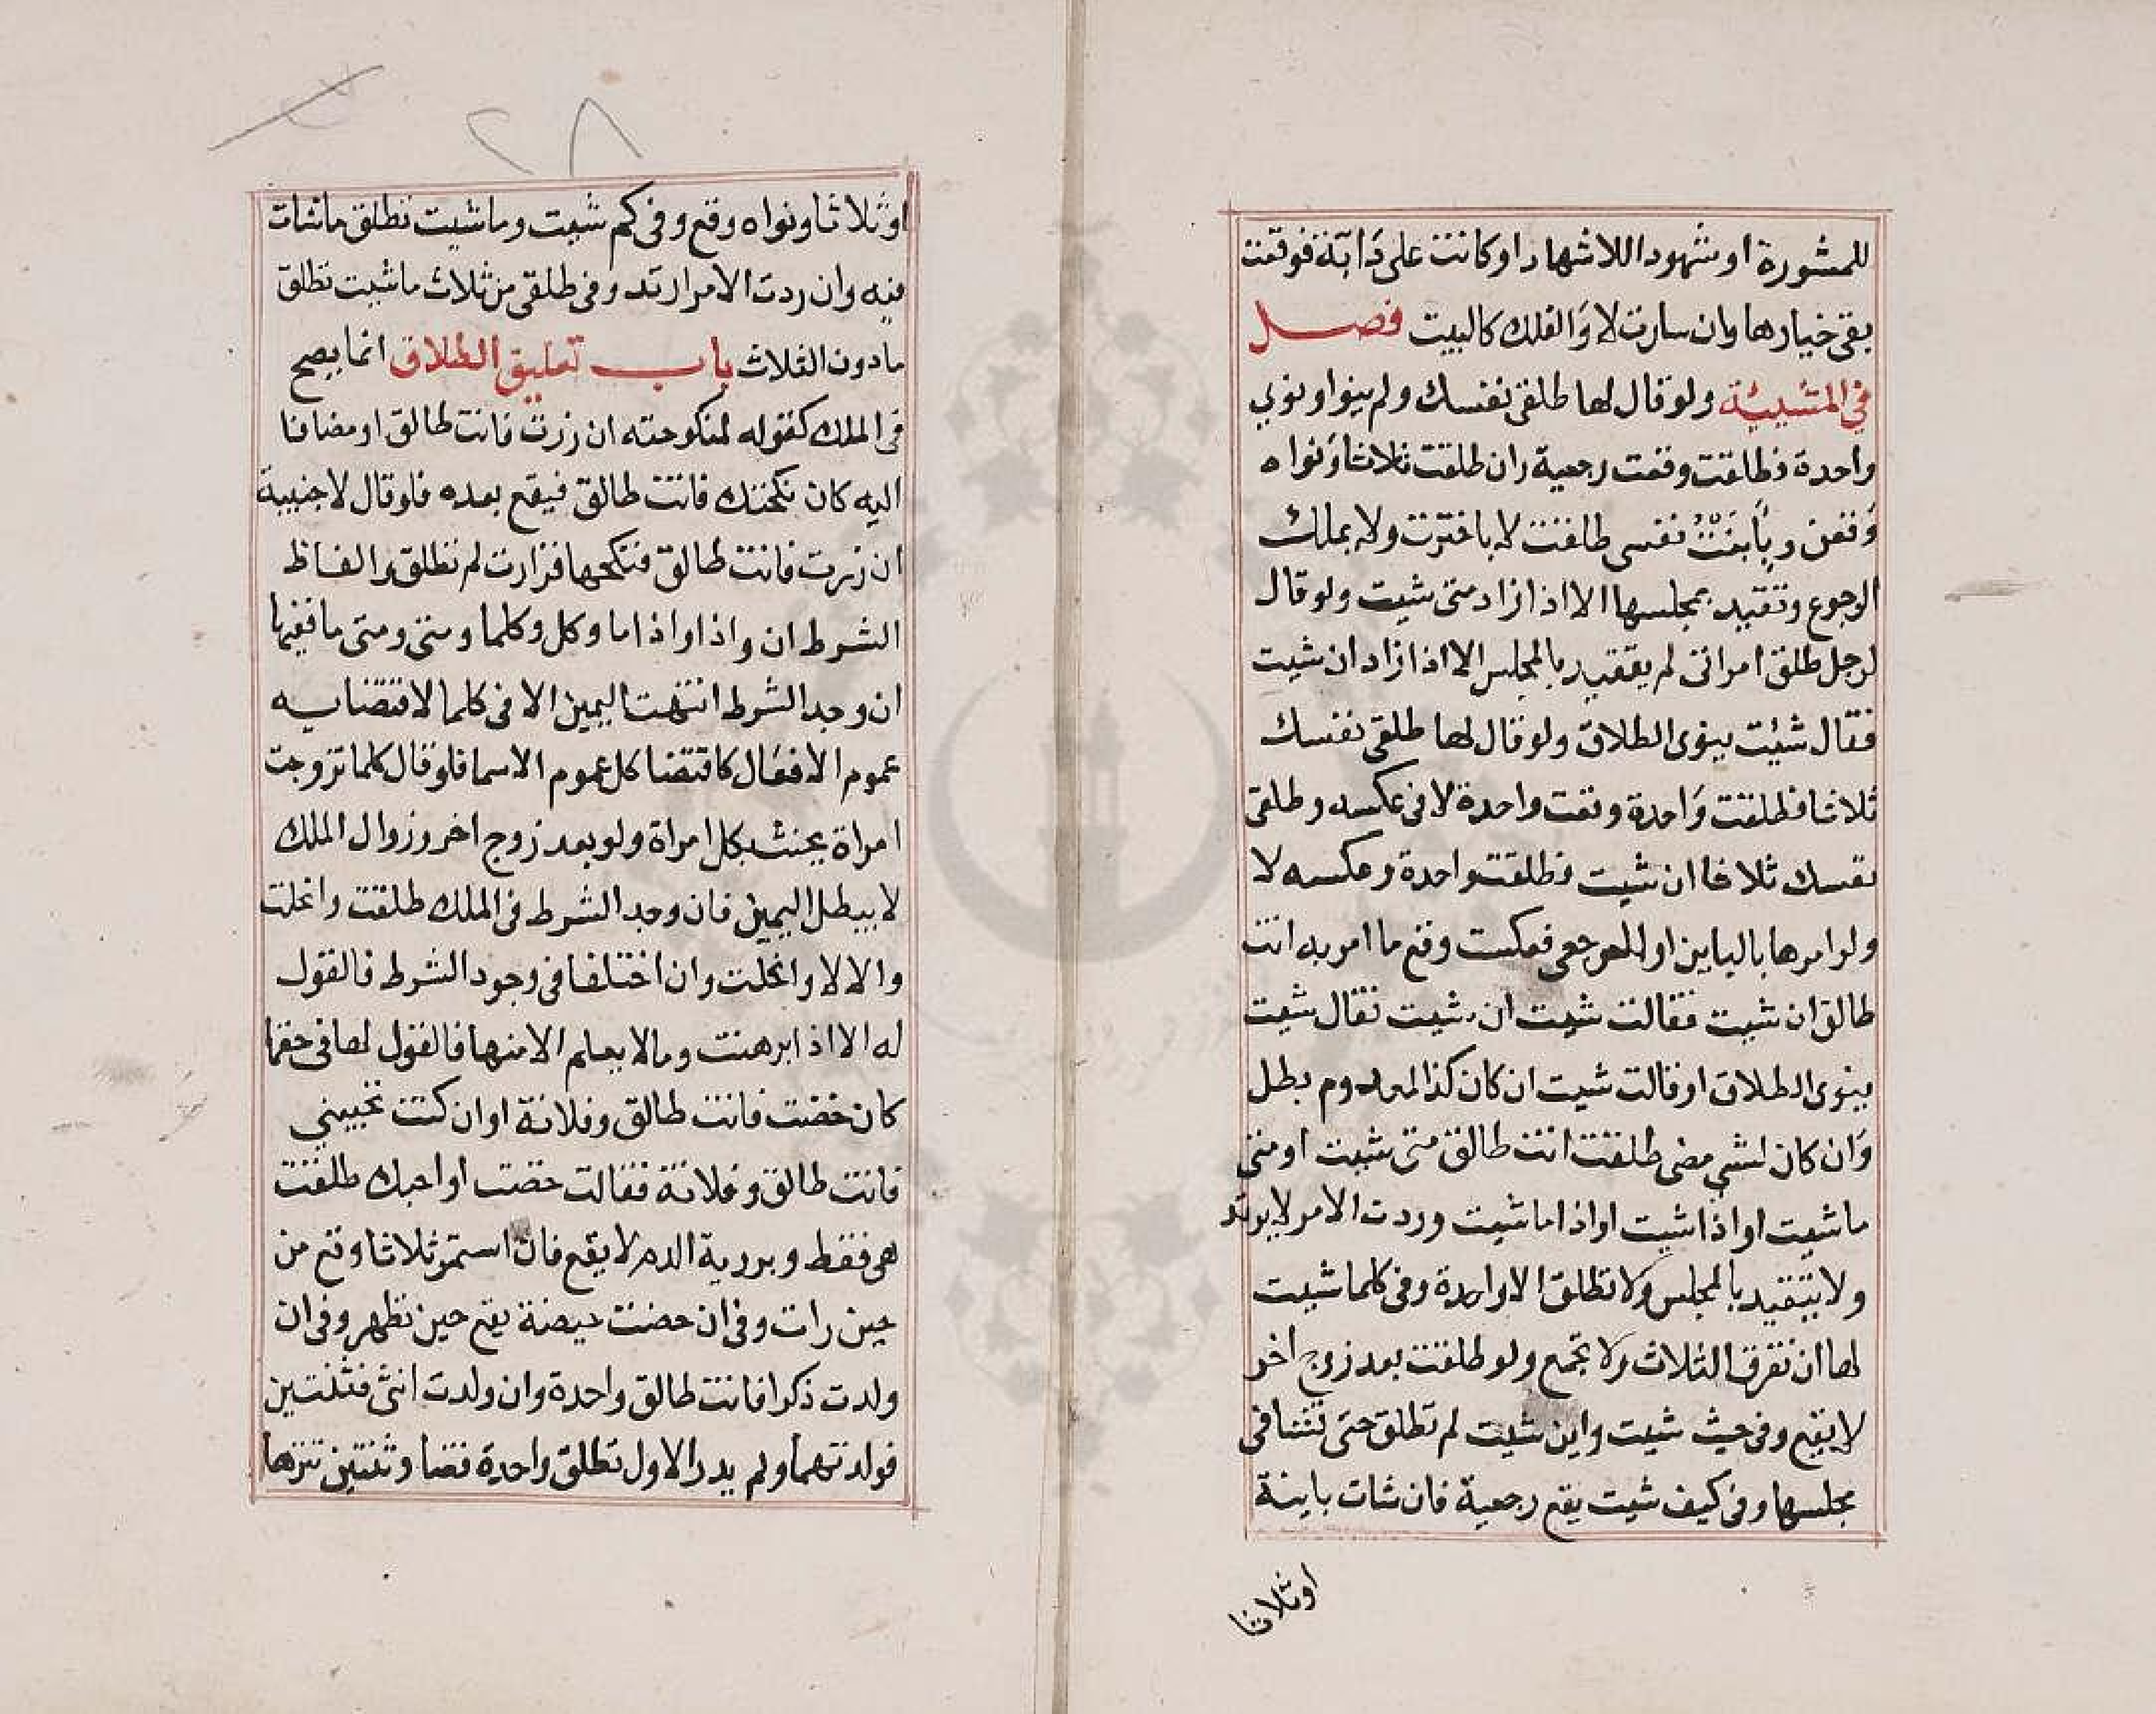 للمشورة او شهودا للاشهاد او كانت على دابة فوقفت
بقى خيارها وان سارت لا والفلك كالبيت فصل
في المشيية ولو قال لها طلقى نفسك ولم ينو او نوي
واحدة فطلقت وقعت رجعية وان طلقت ثلاثا ونواه
وقعن وبابنت نفسى طلقت لا باخترت ولا يملك
الرجوع وتقيد بمجلسها الا اذا زاد متى شيت ولو قال
لرجل طلق امراتى لم يتقيد بالمجلس الا اذا زاد ان شيت
فقال شئت ينوى الطلاق ولو قال لها طلقى نفسك
ثلاثا فطلقت واحدة وقعت واحدة لا فى عكسه وطلقى
نفسك ثلاثا ان شيت فطلقت واحدة وعكسه لا
ولو امرها بالباين او الرجعى فعكست وقع ما امر به انت
طالق ان شيت فقالت شيت ان شيت فقال شيت
ينوى الطلاق او قالت شيت ان كان كذا لمعدوم بطل
وان كان لشي مضى طلقت انت طالق متى شيت او متى
ما شيت او اذا شيت او اذا ما شيت وردت الامر لا يرتد
ولا يتقيد بالمجلس ولا تطلق الا واحدة وفى كلما شيت
لها ان تفرق الثلاث ولا تجمع ولو طلقت بعد زوج اخر
لا يقع وفى حيث شيت واين شيت لم تطلق حتى تشا فى
مجلسها وفى كيف شيت يقع رجعية فان شات باينة
او ثلاثا
٢٨
او ثلاثا ونواه وقع وفى كم شيت وما شيت تطلق ما شات
فيه وان ردت الامر ارتد وفى طلقى من ثلاث ما شيت تطلق
ما دون الثلاث باب تعليق الطلاق انما يصح
فى الملك كقوله لمنكوحته ان زرت فانت طالق او مضافا
اليه كان نكحتك فانت طالق فيقع بعده فلو قال لاجنبية
ان زرت فانت طالق فنكحها فزارت لم تطلق والفاظ
الشرط ان واذا واذا ما وكل وكلما ومتى ومتى ما ففيها
ان وجد الشرط انتهت اليمين الا فى كلما لاقتضايه
عموم الافعال كاقتضا كل عموم الاسما فلو قال كلما تزوجت
امراة يحنث بكل امراة ولو بعد زوج اخر وزوال الملك
لا يبطل اليمين فان وجد الشرط فى الملك طلقت وانحلت
والا لا وانحلت وان اختلفا فى وجود الشرط فالقول
له الا اذا برهنت وما لا يعلم الا منها فالقول لها فى حقها
كان حضت فانت طالق وفلانة او ان كنت تحبينى
فانت طالق وفلانة فقالت حضت او احبك طلقت
هى فقط وبروية الدم لا يقع فان استمر ثلاثا وقع من
حين رات وفى ان حضت حيضة يقع حين تطهر وفى ان
ولدت ذكرا فانت طالق واحدة وان ولدت انثى فثنتين
فولدتهما ولم يدر الاول تطلق واحدة قضا وثنتين تنزها